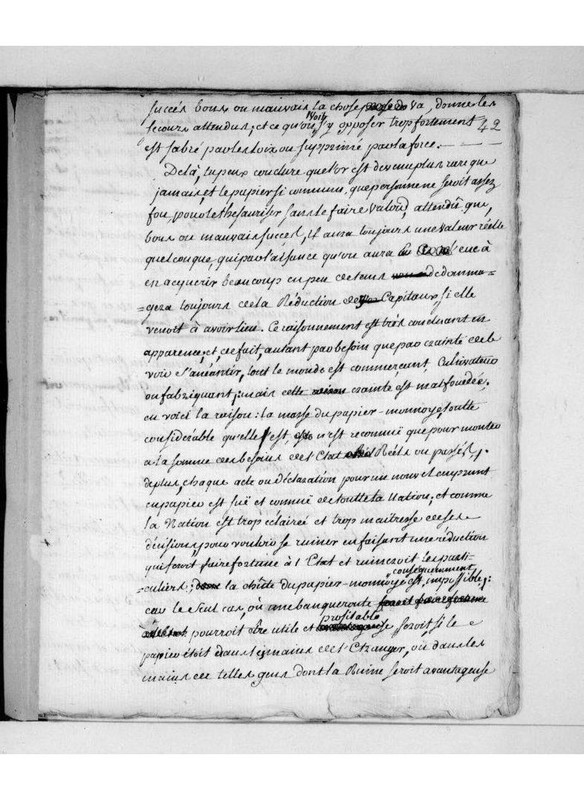 succès bons ou mauvais la chose va, donne les
secours attendus; et ce qu'on voit s'y opposer trop fortement 42
est sabré par les loix ou supprimé par la force.
De là, tu peux conclure que l'or est devenu plus rare que
jamais, et le papier si commun que personne ne seroit assez
fou pour le thésauriser sans le faire valoir, attendu que,
bons ou mauvais succès, il aura toujours une valeur réelle
quelconque, qui par l'aisance qu'on aura eue à
en acquérir beaucoup en peu de tems dédomma=
=gera toujours de la Réduction des Capitaux, si elle
venoit à avoir lieu. Ce raisonnement est très concluant en
apparence, et de fait, autant par besoin que par crainte de le
voir s'anéantir, tout le monde est commerçant, Cultivateur
ou fabriquant, mais cette crainte est mal fondée.
en voici la raison: la masse du papier-monnoye, toute
considérable qu'elle est, n'est reconnue que pour monter
à la somme des besoins de l'Etat Réels ou passés;
de plus, chaque acte ou déclaration pour un nouvel emprunt
en papier est sue et connue de toutte la Nation; et comme
la Nation est trop éclairée et trop maîtresse de ses
décisions, pour vouloir se ruiner en faisant une réduction
qui feroit faire fortune à l'Etat et ruineroit les parti-
=culiers; la chûte du papier-monnoye est conséquemment impossible;
car le seul cas, où une banqueroute
pourroit être utile et profitable seroit, si le
papier étoit dans les mains de l'Etranger, ou dans les
mains de telles gens dont la Ruine seroit avantageuse